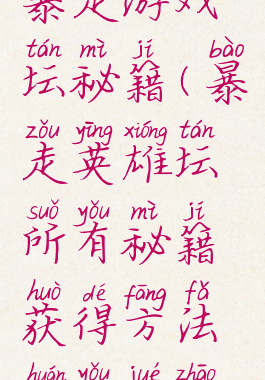 暴走游戏
tán mì jí bào
坛秘籍(暴
zǒu yīng xióng tán
走英雄坛
suǒ yǒu mì jí
所有秘籍
huò dé fāng fǎ
获得方法
huán yǒu jué zhāo